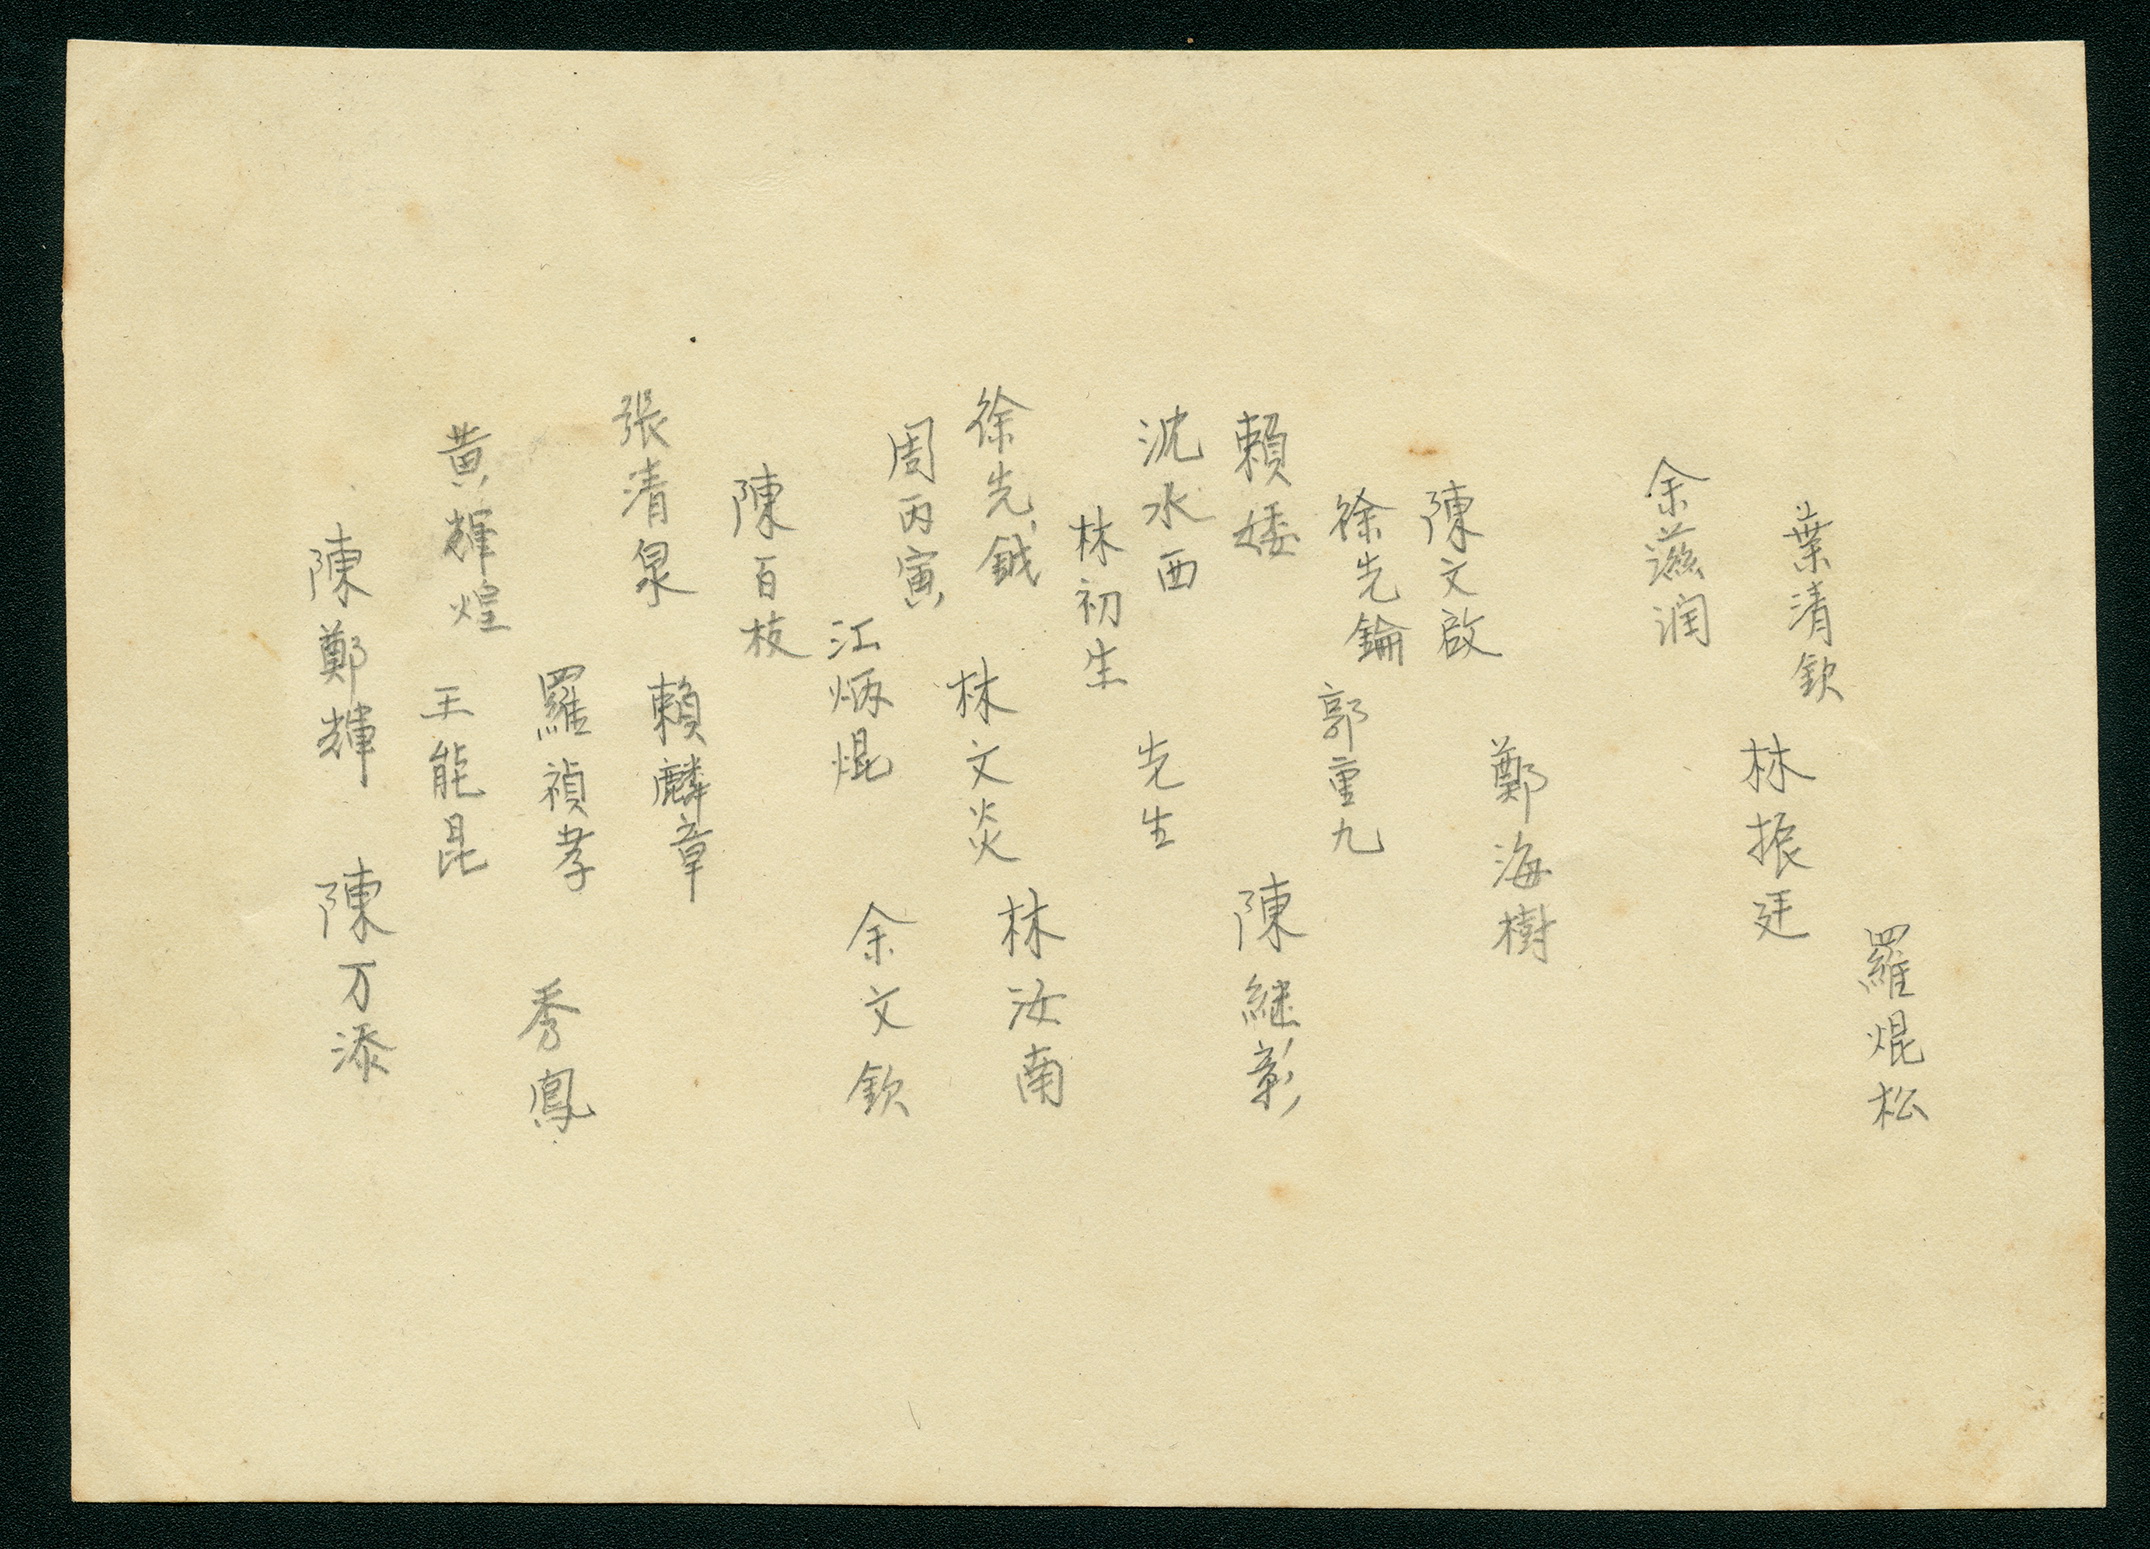 葉清欽
余滋润
陳文啟
徐先錀
賴婑
沈水西
林初生
徐先鉞
周丙寅
陳百枝
張清泉
黄輝煌
陳鄭輝
林振廷
鄭海樹
郭重九
先生
林文炎
江炳焜
賴麟章
羅禎孝
王能昆
羅焜松
陳継彰
林汝南
余文欽
秀鳳
陳万添